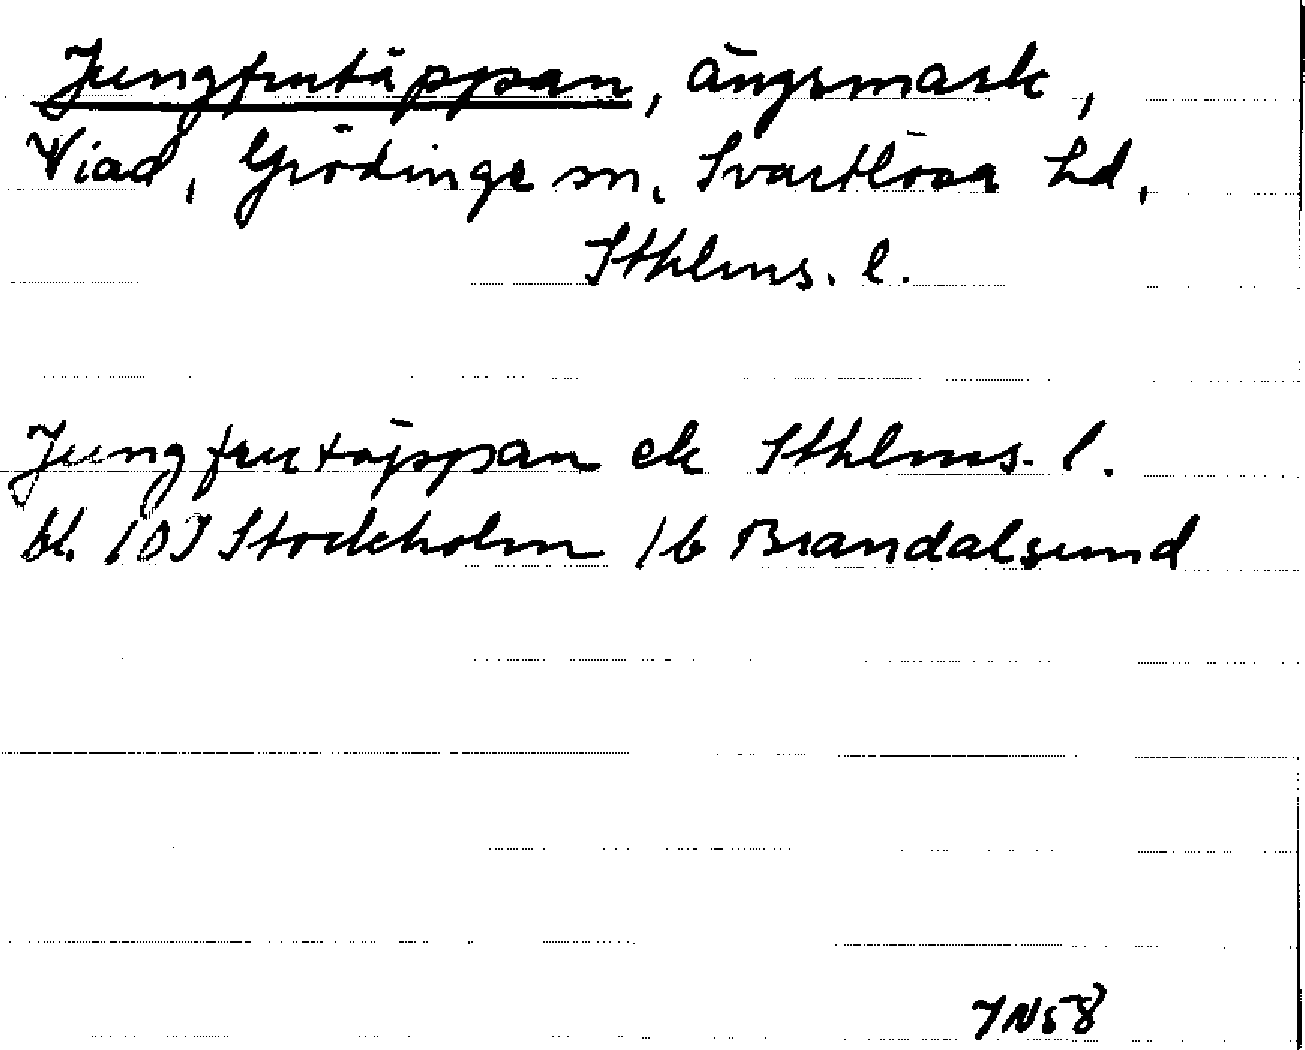 Jungfrutäppan, ängsmark,
Viad, Grödinge sn, Svartlösa hd,
Sthlms. l.
Jungfrutäppan ek Sthlms. l.
bl. 10I Stockholm 1b Brandalsund